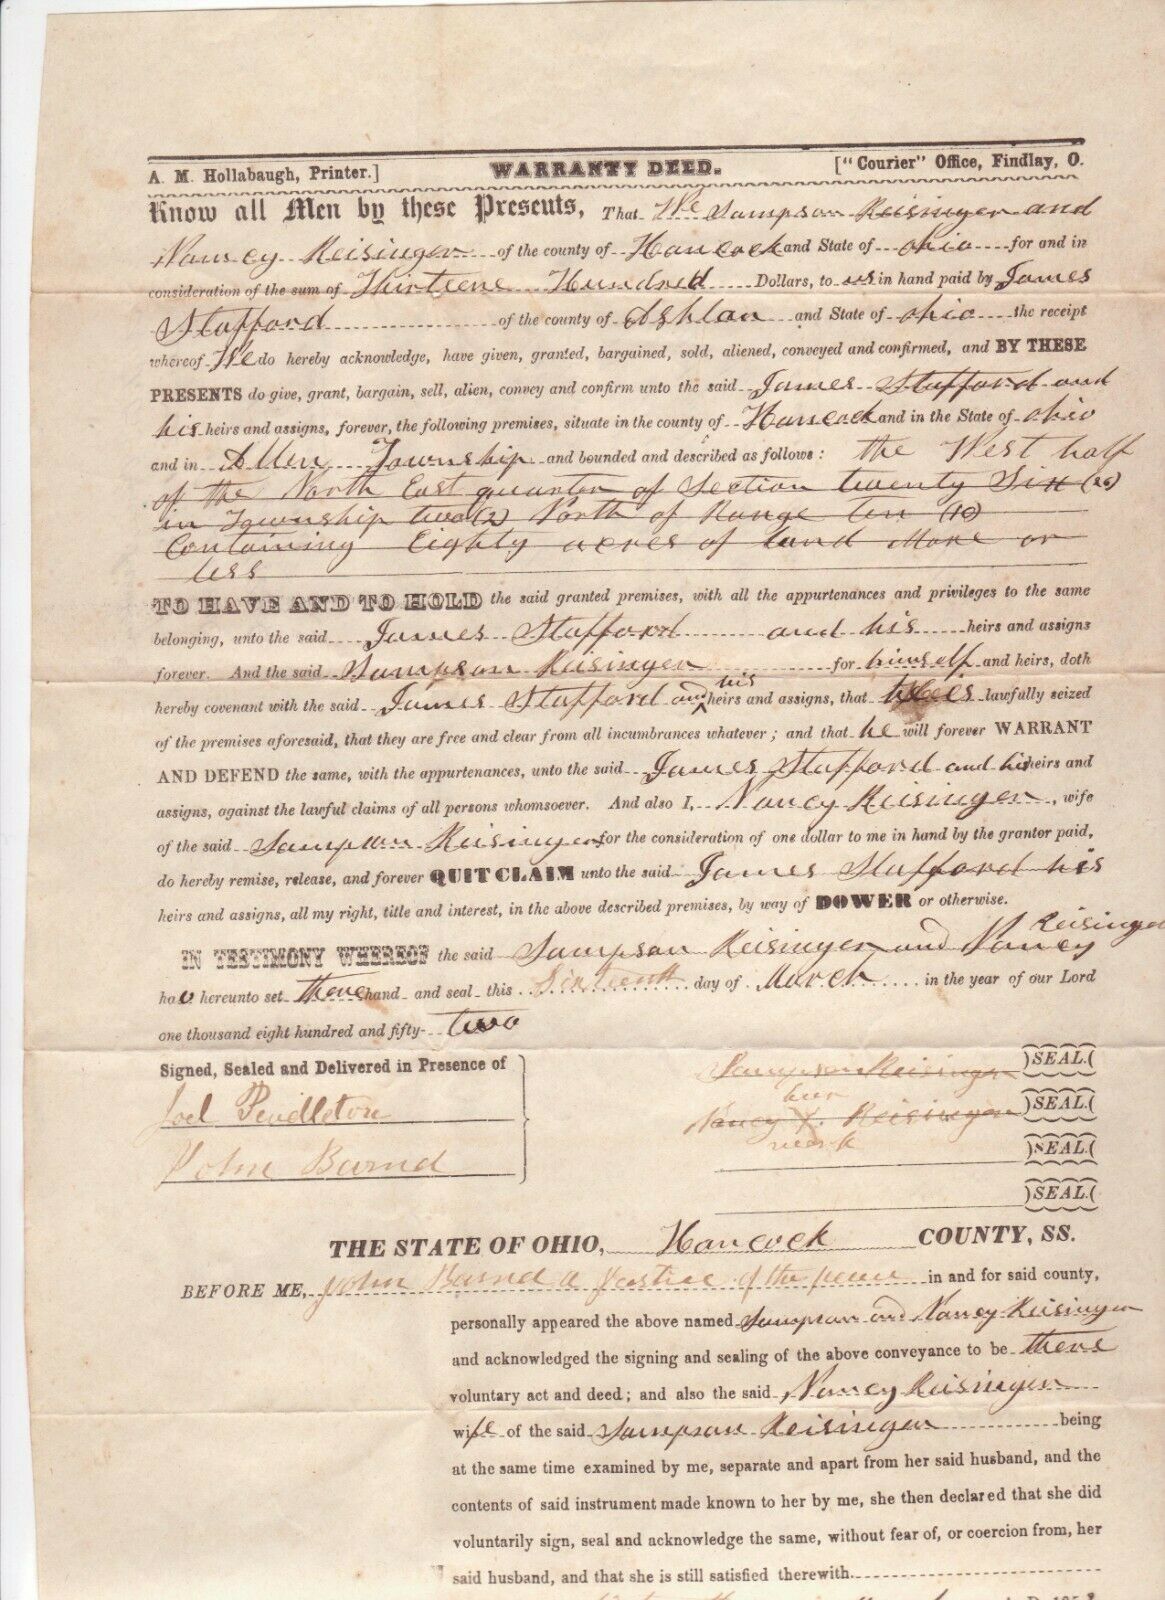 A. M. Hollabaugh, Printer.] WARRANTY DEED. ["Courier" Office, Findlay, O.
Know all Men by these Presents, That We Sampson Reisinger and
Nancy Reisinger of the county of Hancock and State of ohio for and in
consideration of the sum of Thirteene Hundred Dollars, to us in hand paid by James
Stafford of the county of Ashlan and State of ohio the receipt
whereof We do hereby acknowledge, have given, granted, bargained, sold, aliened, conveyed and confirmed, and BY THESE
PRESENTS do give, grant, bargain, sell, alien, convey and confirm unto the said James Stafford and
his heirs and assigns, forever, the following premises, situate in the county of Hancock and in the State of ohio
and in Allen Township and bounded and described as follows: the West half
of the North East quarter of Section twenty Six (26)
in Township two (2) North of Range ten (10)
Containing Eighty acres of land More or
less
TO HAVE AND TO HOLD the said granted premises, with all the appurtenances and privileges to the same
belonging, unto the said James Stafford and his heirs and assigns
forever. And the said Sampson Reisinger for himself and heirs, doth
hereby covenant with the said James Stafford and his heirs and assigns, that he is lawfully seized
of the premises aforesaid, that they are free and clear from all incumbrances whatever; and that he will forever WARRANT
AND DEFEND the same, with the appurtenances, unto the said James Stafford and his heirs and
assigns, against the lawful claims of all persons whomsoever. And also I, Nancy Reisinger, wife
of the said Sampson Reisinger for the consideration of one dollar to me in hand by the grantor paid,
do hereby remise, release, and forever QUIT CLAIM unto the said James Stafford his
heirs and assigns, all my right, title and interest, in the above described premises, by way of DOWER or otherwise.
IN TESTIMONY WHEREOF the said Sampson Reisinger and Nancy Reisinger
hav hereunto set there hand and seal this Sixteenth day of March in the year of our Lord
one thousand eight hundred and fifty-two
Signed, Sealed and Delivered in Presence of
Joel Pendleton
John Barnd
Sampson Reisinger SEAL.
her
Nancy X Reisinger SEAL.
mark
SEAL.
SEAL.
THE STATE OF OHIO, Hancock COUNTY, SS.
BEFORE ME, John Barnd a Justice of the peace in and for said county,
personally appeared the above named Sampson and Nancy Reisinger
and acknowledged the signing and sealing of the above conveyance to be there
voluntary act and deed; and also the said Nancy Reisinger
wife of the said Sampson Reisinger being
at the same time examined by me, separate and apart from her said husband, and the
contents of said instrument made known to her by me, she then declared that she did
voluntarily sign, seal and acknowledge the same, without fear of, or coercion from, her
said husband, and that she is still satisfied therewith.